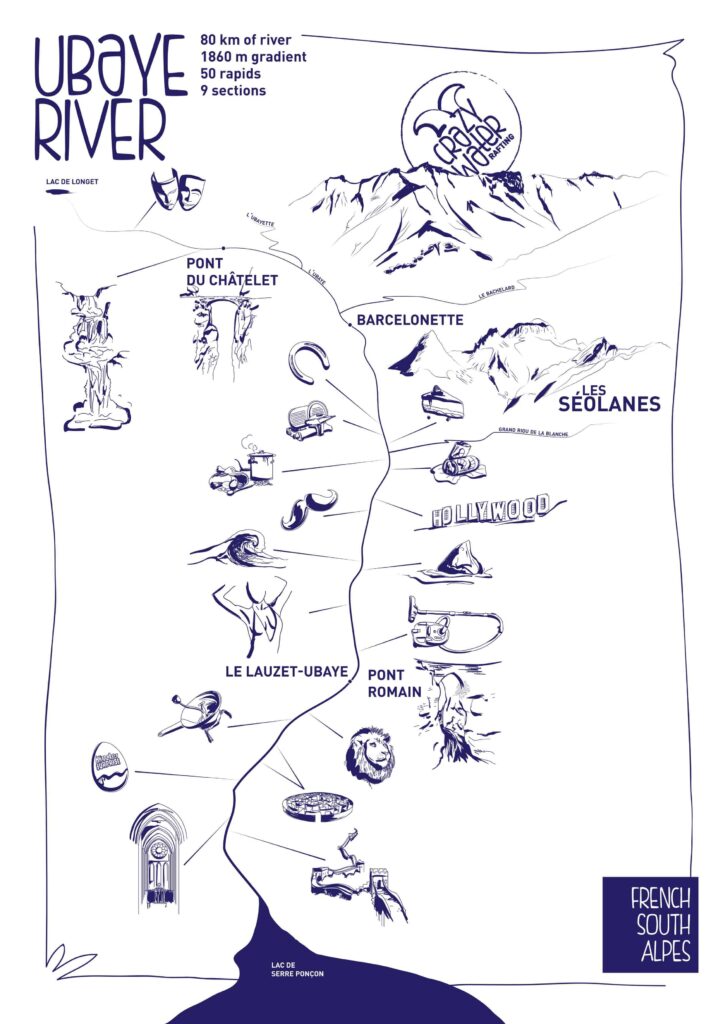 UBAYE
RIVER
80 km of river
1860 m gradient
50 rapids
9 sections
CRAZY
WATER
RAFTING
LAC DE LONGET
L'UBAYETTE
L'UBAYE
PONT
DU CHÂTELET
LE BACHELARD
BARCELONETTE
LES
SÉOLANES
GRAND RIOU DE LA BLANCHE
HOLLYWOOD
LE LAUZET-UBAYE
PONT
ROMAIN
SURPRISE
FRENCH
SOUTH
ALPES
LAC DE
SERRE PONÇON